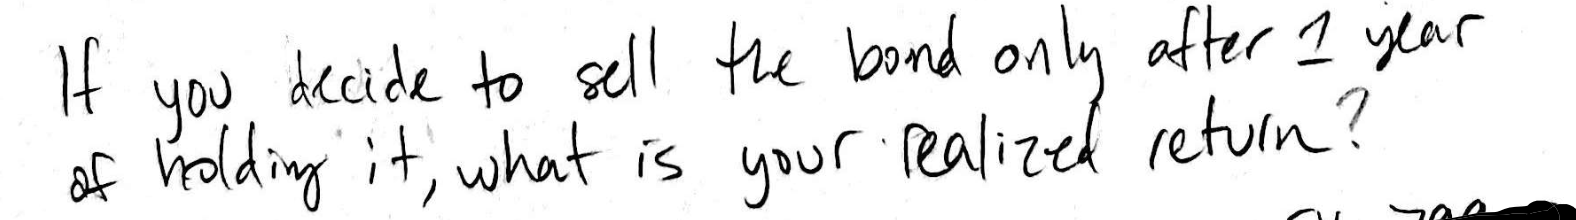 If you decide to sell the bond only after 1 year
of holding it, what is your realized return?